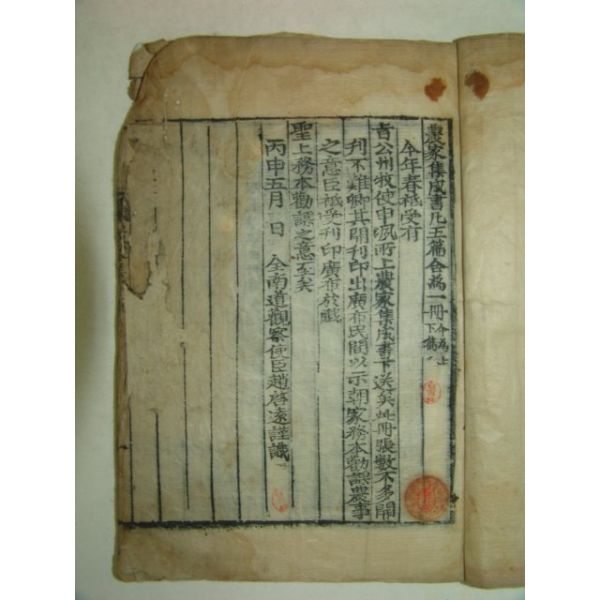 農家集成書凡五篇合爲一冊
今年春祗受有
旨公州牧使申洬所上農家集成書下送矣此冊張數不多開
刊不難卿其開刊印出廣布民間以示朝家務本勸課農事
之意臣祗受刊印廣布於戲
聖上務本勸課之意至矣
丙申五月 日 全南道觀察使臣趙啓遠謹識